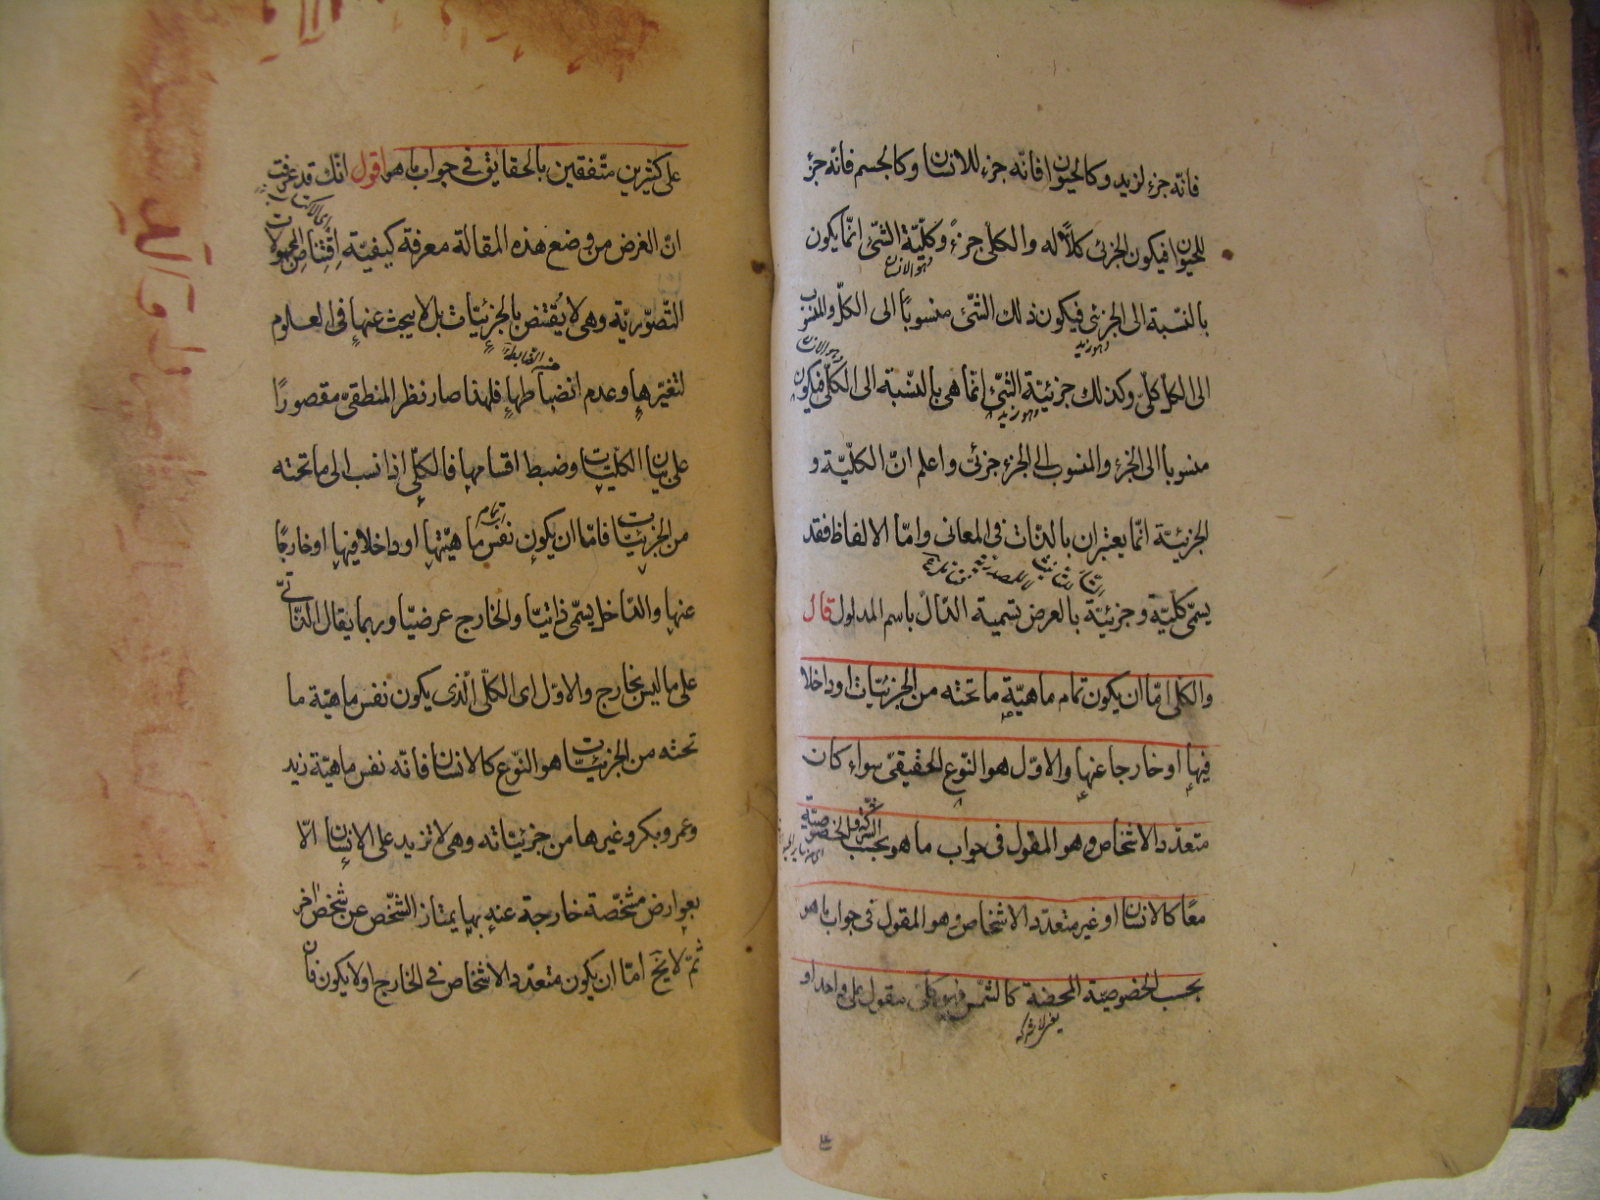 فانّه جزء لزيد وكالحيوان فانّه جزء للانسان وكالجسم فانّه جزء
للحيوان فيكون الجزئى كلّا له والكلى جزءً وكلّيّة الشّئ انّما يكون
وهو الانسان
بالنّسبة الى الجزئى فيكون ذلك الشّئ منسوبًا الى الكلّ والمنسوب
وهو زيد
وهو الانسان
الى الكلّ كلّى وكذلك جزئيّة الشّئ انّما هى بالنّسبة الى الكلّى فيكون
وهو زيد
منسوبا الى الجزء والمنسوب الى الجزء جزئى واعلم انّ الكلّيّة و
الجزئيّة انّما يعتبران بالذّات فى المعانى وامّا الالفاظ فقد
يسمّى كلّيّة وجزئيّة بالعرض تسمية الدّالّ باسم المدلول قال
والكلى امّا ان يكون تمام ماهيّة ما تحته من الجزئيّات او داخلا
فيها او خارجا عنها والاوّل هو النّوع الحقيقىّ سواء كان
متعدّد الاشخاص وهو المقول فى جواب ما هو بحسب الشّركة والخصوصيّة
معًا كالانسان او غير متعدّد الاشخاص وهو المقول فى جواب ما هو
بحسب الخصوصيّة المحضة كالشّمس فهو كلّى مقول على واحد او
على كثيرين متّفقين بالحقايق فى جواب ما هو اقول انّك قد عرفت
انّ الغرض من وضع هذه المقالة معرفة كيفيّة اقتناص المجهولات
التّصوّريّة وهى لا يُقتنص بالجزئيّات بل لا يبحث عنها فى العلوم
لتغيّرها وعدم انضباطها فلهذا صار نظر المنطقىّ مقصورًا
على بيان الكلّيّات وضبط اقسامها فالكلّى اذا نسب الى ما تحته
من الجزئيّات فامّا ان يكون نفس ماهيّتها او داخلا فيها او خارجًا
عنها والدّاخل يسمّى ذاتيّا والخارج عرضيّا وربما يقال الذّاتىّ
على ما ليس بخارج والاوّل اى الكلّى الّذى يكون نفس ماهيّة ما
تحته من الجزئيّات هو النّوع كالانسان فانّه نفس ماهيّة زيد
وعمرو وبكر وغيرها من جزئيّاته وهى لا تزيد على الانسان الّا
بعوارض مشخّصة خارجة عنه بها يمتاز الشّخص عن شخص اٰخر
ثمّ لا يخ امّا ان يكون متعدّد الاشخاص فى الخارج او لا يكون فان